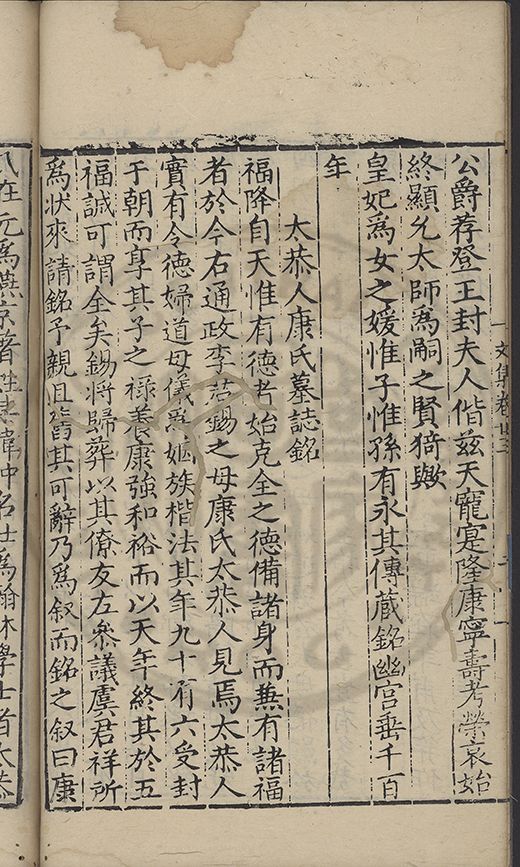 公爵荐登王封夫人偕兹天寵寔隆康寧壽考榮哀始
終顯允太師爲嗣之賢猗歟
皇妃爲女之媛惟子惟孫有永其傳蔵銘幽宮垂千百
年
太恭人康氏墓誌銘
福降自天惟有德者始克全之德備諸身而兼有諸福
者於今右通政李君錫之母康氏太恭人見焉太恭人
實有令德婦道母儀爲姻族楷法其年九十有六受封
于朝而享其子之禄養康強和裕而以天年終其於五
福誠可謂全矣錫將歸葬以其僚友左叅議虞君祥所
爲狀來請銘予親且舊其可辭乃爲叙而銘之叙曰康
氏在元爲燕京著姓 中名士爲翰林學士者太恭
文集卷廿三